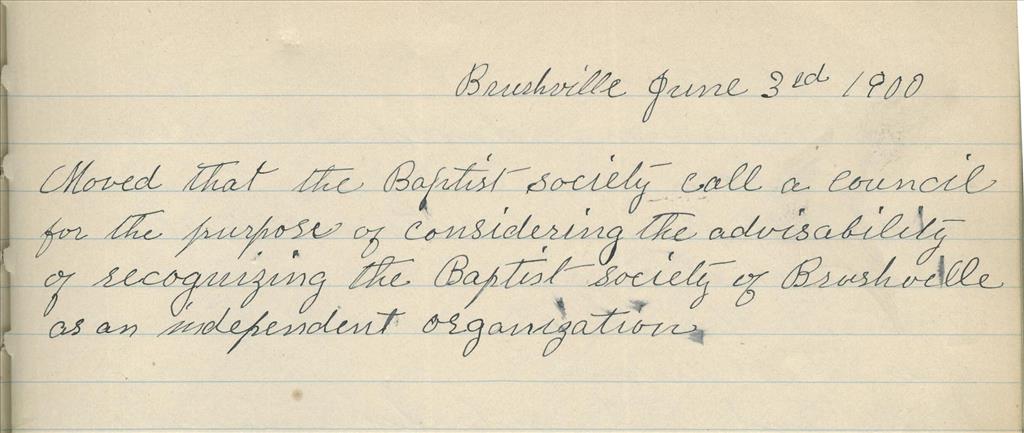 Brushville June 3rd 1900
Moved that the Baptist society call a council
for the purpose of considering the advisability
of recognizing the Baptist society of Brushville
as an independent organization